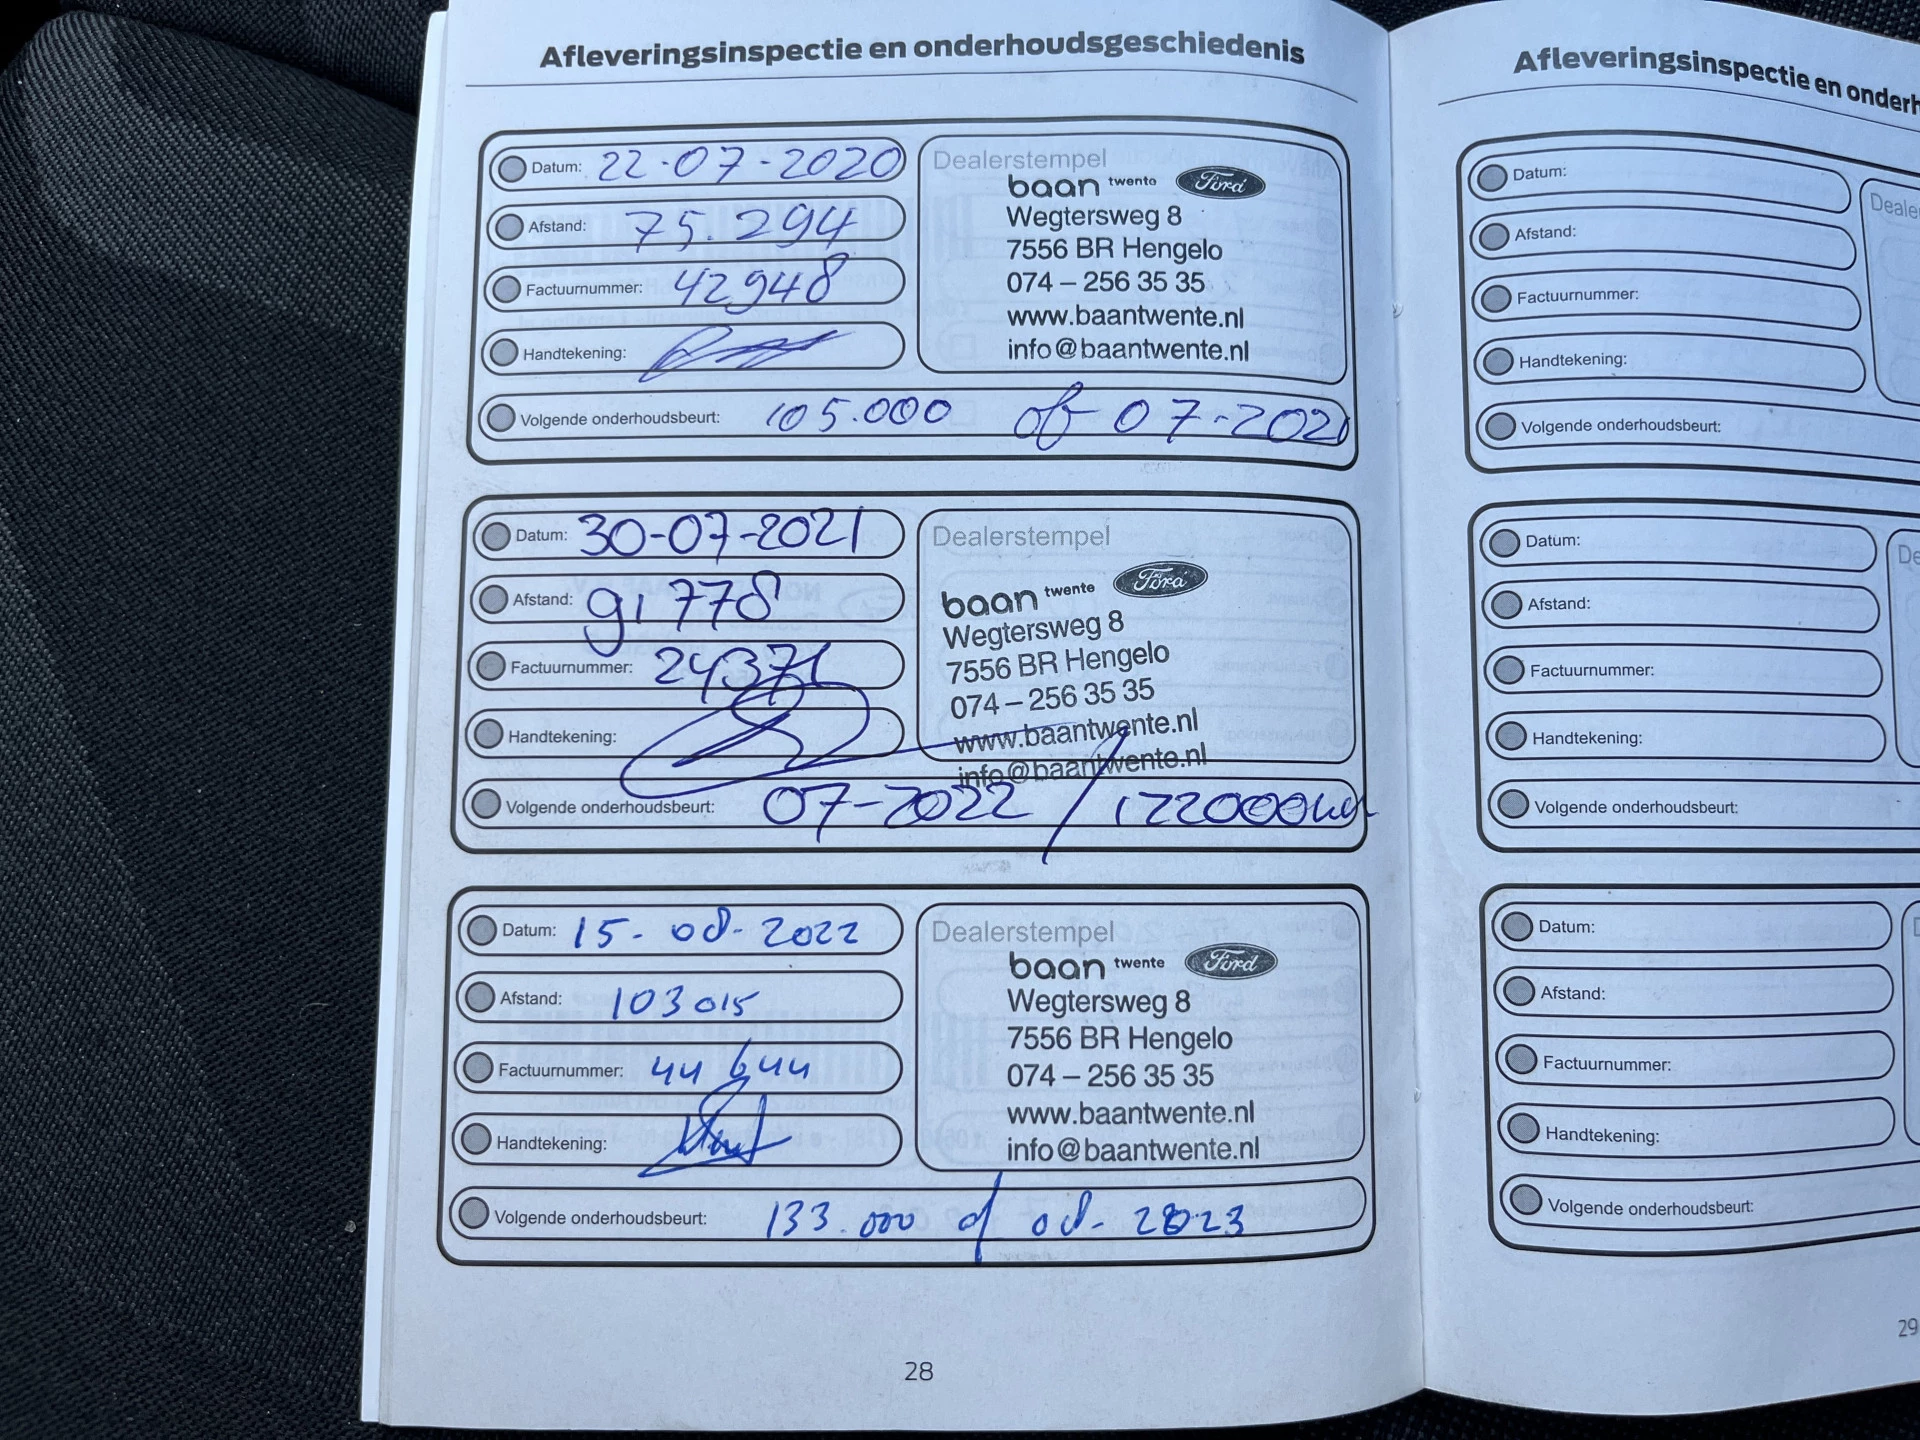 Afleveringsinspectie en onderhoudsgeschiedenis
Datum: 22-07-2020
Afstand: 75.294
Factuurnummer: 42948
Handtekening:
Volgende onderhoudsbeurt: 105.000 of 07-2021
Dealerstempel
baan twente Ford
Wegtersweg 8
7556 BR Hengelo
074 – 256 35 35
www.baantwente.nl
info@baantwente.nl
Datum: 30-07-2021
Afstand: 91778
Factuurnummer: 24371
Handtekening:
Volgende onderhoudsbeurt: 07-2022 / 122000km
Dealerstempel
baan twente Ford
Wegtersweg 8
7556 BR Hengelo
074 – 256 35 35
www.baantwente.nl
info@baantwente.nl
Datum: 15-08-2022
Afstand: 103015
Factuurnummer: 44644
Handtekening:
Volgende onderhoudsbeurt: 133.000 of 08-2023
Dealerstempel
baan twente Ford
Wegtersweg 8
7556 BR Hengelo
074 – 256 35 35
www.baantwente.nl
info@baantwente.nl
28
Afleveringsinspectie en onderh
Datum:
Afstand:
Factuurnummer:
Handtekening:
Volgende onderhoudsbeurt:
Deale
Datum:
Afstand:
Factuurnummer:
Handtekening:
Volgende onderhoudsbeurt:
De
Datum:
Afstand:
Factuurnummer:
Handtekening:
Volgende onderhoudsbeurt:
29